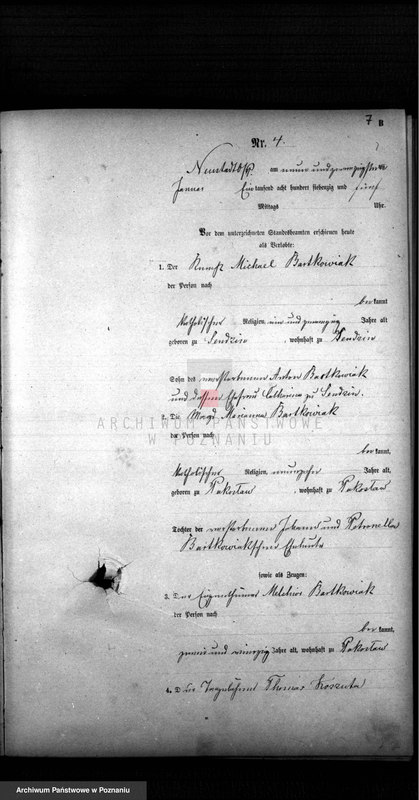 7 B
Nr. 4.
Neustadt b/P am neun und zwanzigsten
Januar Eintausend acht hundert siebenzig und fünf
Mittags Uhr.
Vor dem unterzeichneten Standesbeamten erschienen heute
als Verlobte:
1. Der Knecht Michael Bartkowiak
der Person nach
bekannt
katholischer Religion, ein und zwanzig Jahre alt
geboren zu Sendzin, wohnhaft zu Sendzin
Sohn des verstorbenen Anton Bartkowiak
und dessen Ehefrau Catharina zu Sendzin.
2. Die Magd Marianna Bartkowiak
der Person nach
bekannt,
katholischer Religion, neunzehn Jahre alt,
geboren zu Pakoslaw, wohnhaft zu Pakoslaw
Tochter der verstorbenen Johann und Petronella
Bartkowiakschen Eheleute
sowie als Zeugen:
3. Der Eigenthümer Melchior Bartkowiak
der Person nach
bekannt,
zwei und vierzig Jahre alt, wohnhaft zu Pakoslaw
4. Der Tagelöhner Thomas Koszuta
ARCHIWUM PAŃSTWOWE
W POZNANIU
Archiwum Państwowe w Poznaniu